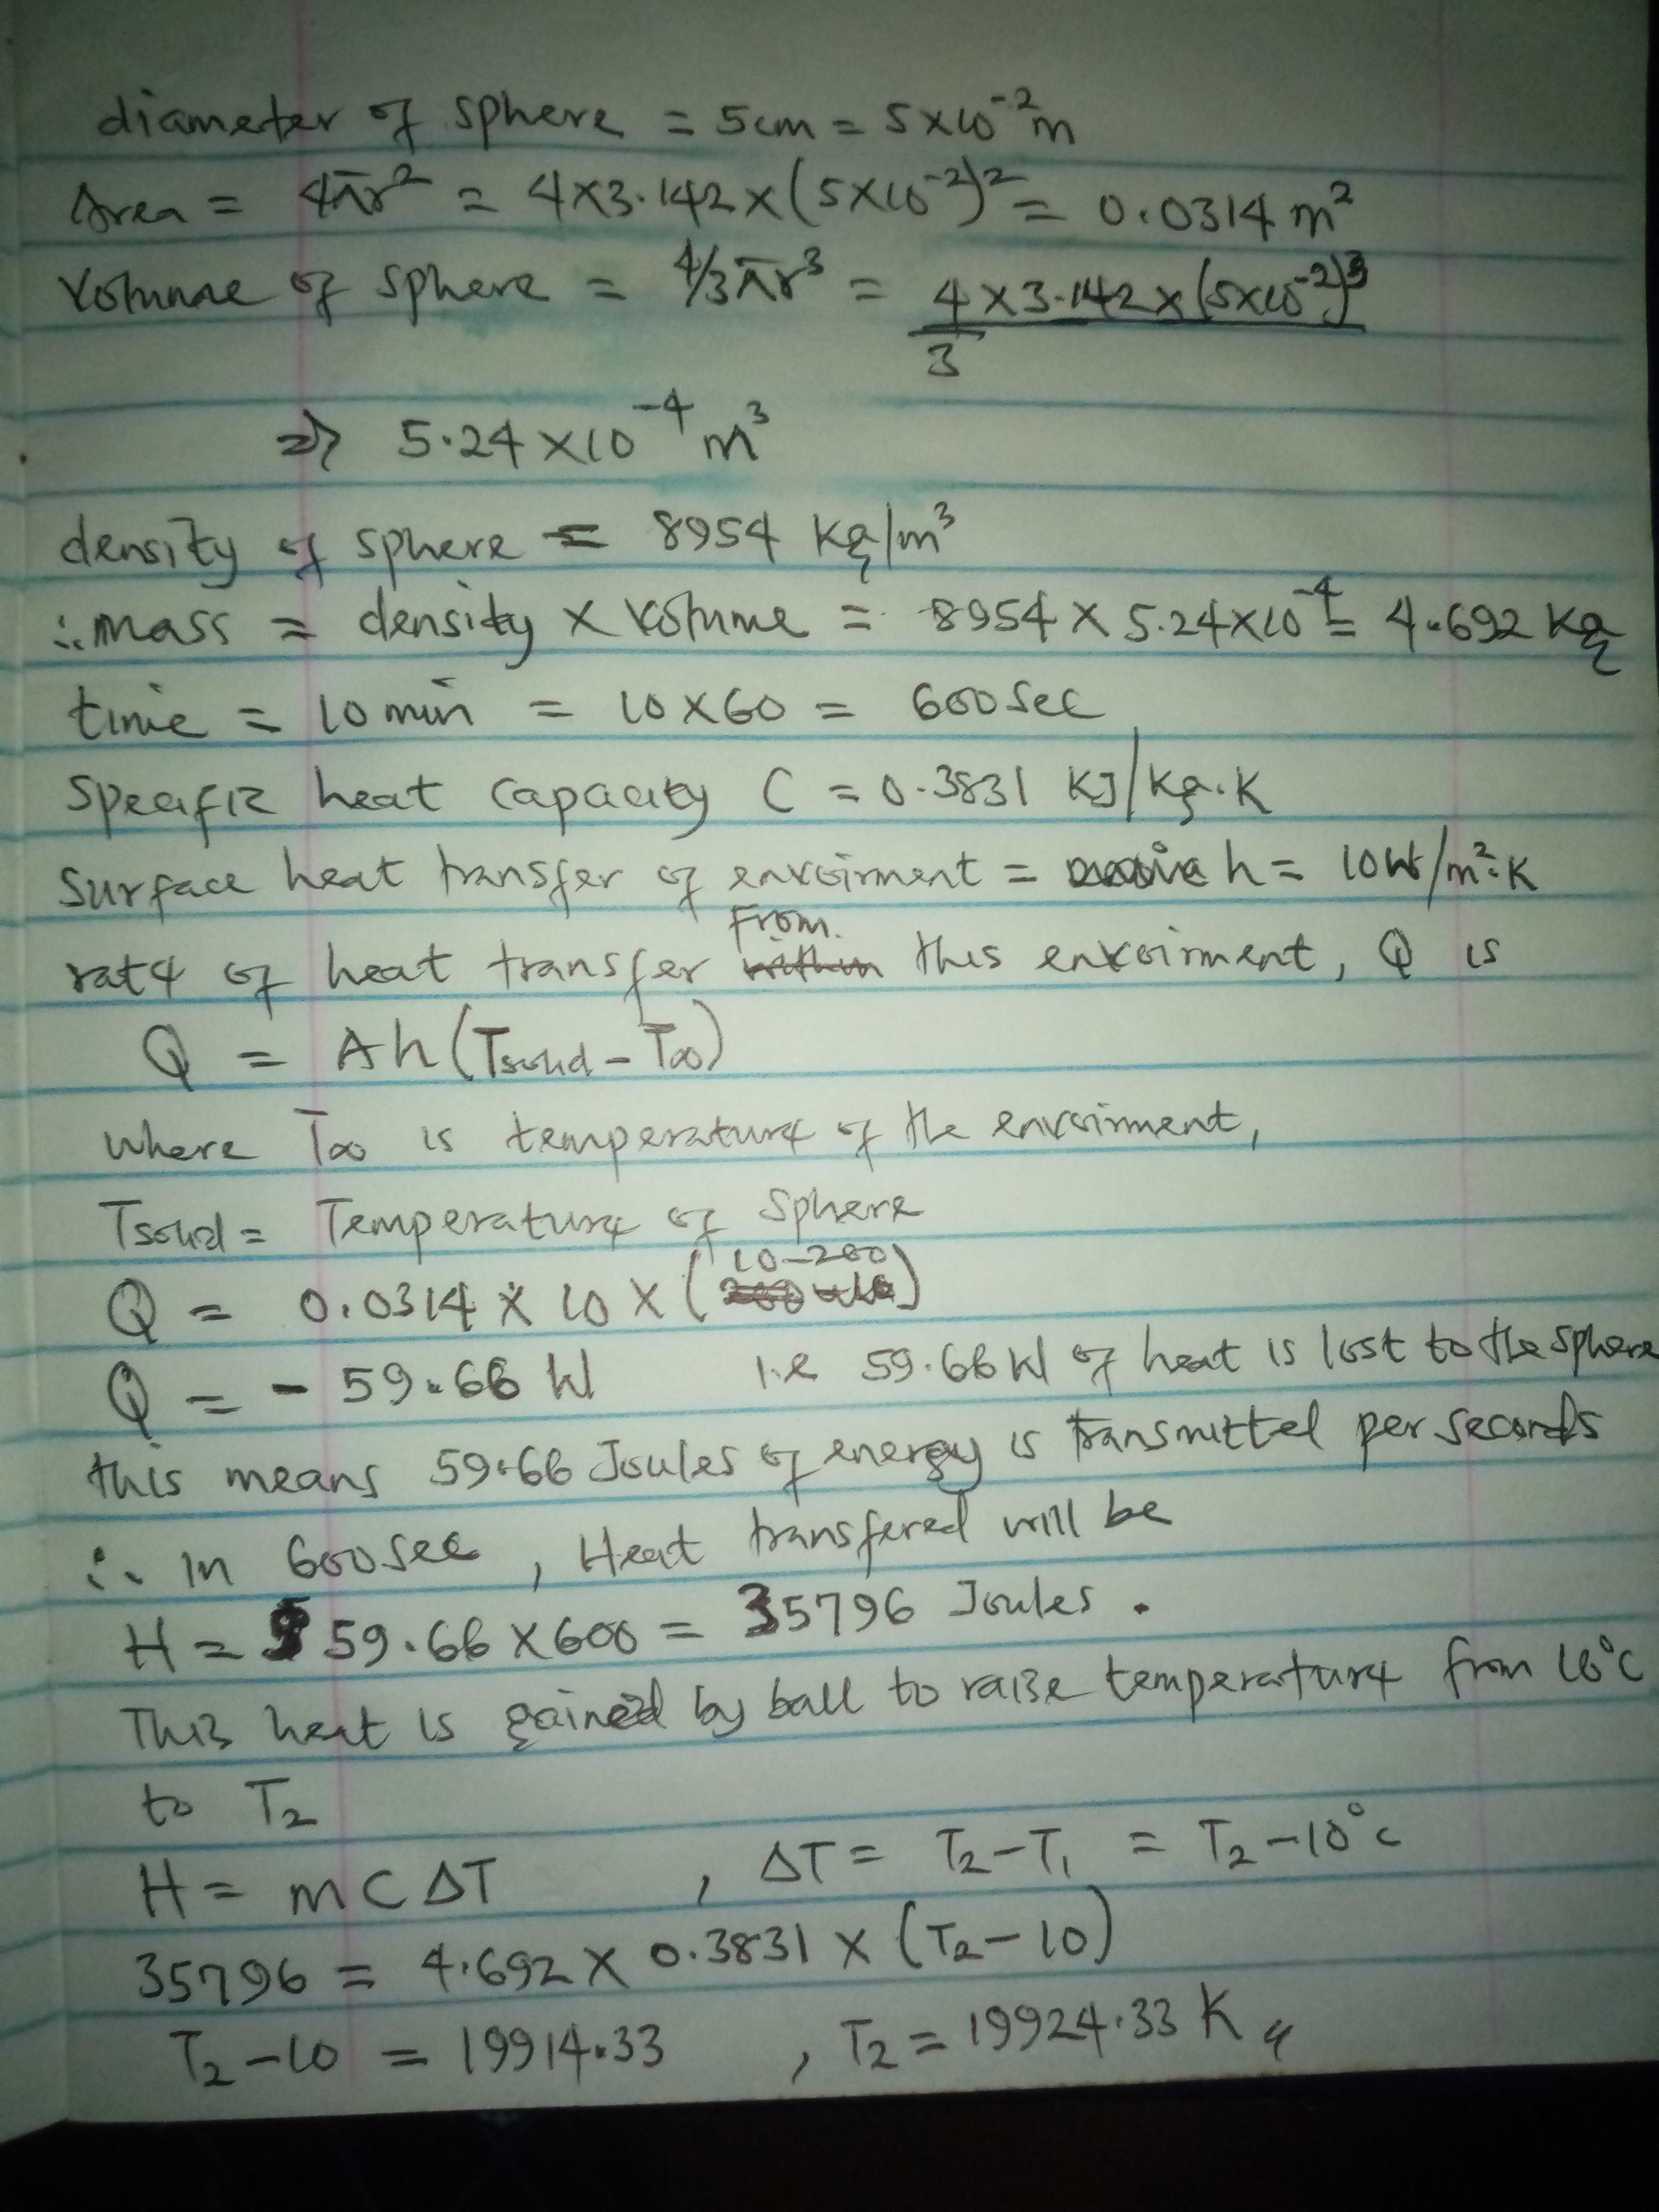 diameter of sphere = 5cm = 5×10⁻²m
Area = 4πr² = 4×3.142×(5×10⁻²)² = 0.0314 m²
Volume of sphere = 4/3πr³ = 4×3.142×(5×10⁻²)³
3
=> 5.24×10⁻⁴ m³
density of sphere = 8954 Kg/m³
∴ mass = density × volume = 8954 × 5.24×10⁻⁴ = 4.692 Kg
time = 10 min = 10×60 = 600 Sec
Specific heat capacity C = 0.3831 KJ/Kg.K
Surface heat transfer of envoirment = h = 10W/m².K
rate of heat transfer from this envoirment, Q is
Q = Ah(Tsolid – T∞)
where T∞ is temperature of the envoirment,
Tsolid = Temperature of Sphere
Q = 0.0314 × 10 × (10–200)
Q = - 59.66 W i.e 59.66W of heat is lost to the sphere
this means 59.66 Joules of energy is transmittel per seconds
∴ in 600sec, Heat transfered will be
H = 59.66×600 = 35796 Joules.
This heat is gained by ball to raise temperature from 10°C
to T₂
H = mCΔT , ΔT = T₂–T₁ = T₂–10°C
35796 = 4.692 × 0.3831 × (T₂–10)
T₂–10 = 19914.33 , T₂ = 19924.33 K